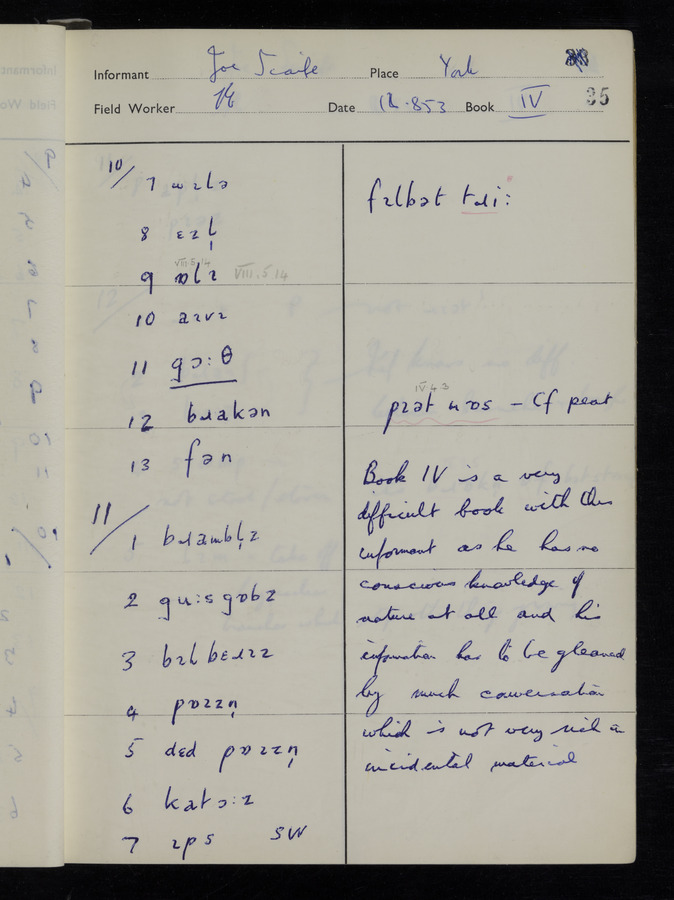 Informant Joe Scaife Place York
Field Worker Date 12.8 53 Book IV 35
10/ 7 wɪlə
fɪlbət tɹiː
8 ɛɪl̩
VIII.5.14
9 ɒlɪ VIII.5.14
10 aɪvɪ
11 gɔːθ
IV 4 3
12 bɹakən
pɪət mɒs – Cf peat
13 fən
11/ 1 bɹambl̩z
2 guːsgɒbz
3 bɪlbɛɹɪz
4 pɒɪzn̩
5 dɛd pɒɪzn̩
6 katɔːz
7 ɪps SW
Book IV is a very
difficult book with this
informant as he has no
conscious knowledge of
nature at all and his
information has to be gleaned
by much conversation
which is not very rich in
incidental material